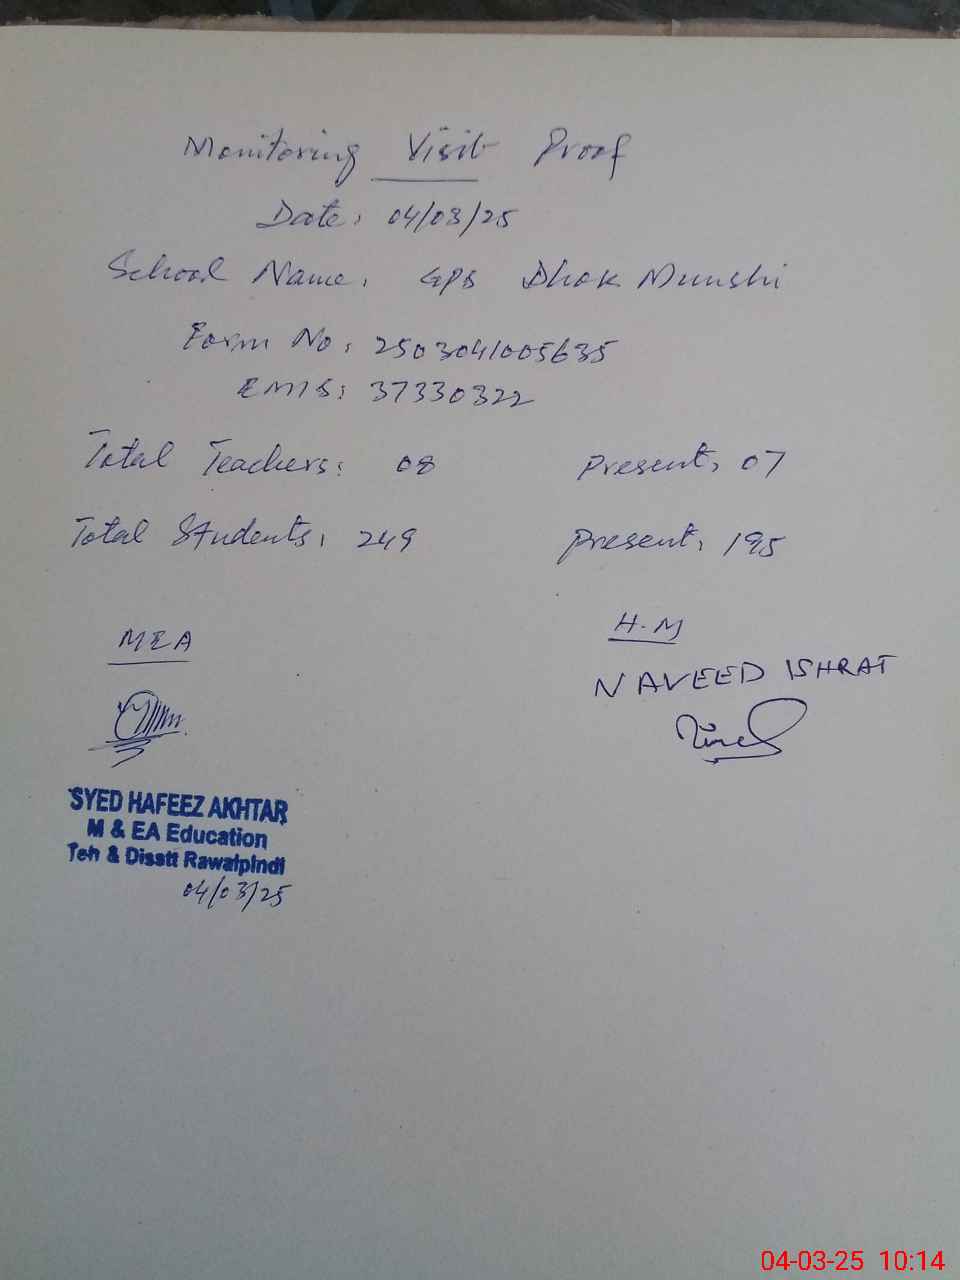 Monitoring Visit Proof
Date: 04/03/25
School Name: GPS Dhok Munshi
Form No: 2503041005635
EMIS: 37330322
Total Teachers: 08 Present: 07
Total Students: 249 Present: 195
MEA H.M
NAVEED ISHRAT
SYED HAFEEZ AKHTAR
M & EA Education
Teh & Disstt Rawalpindi
04/03/25
04-03-25 10:14